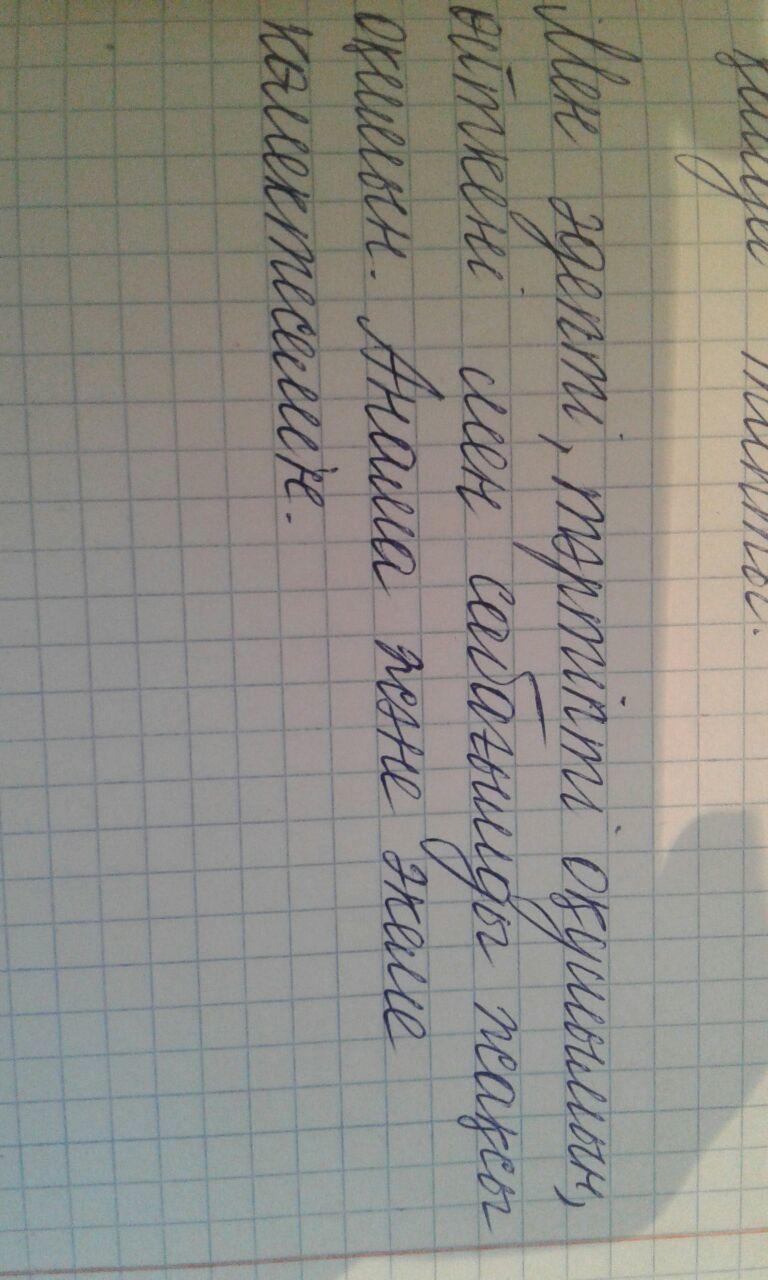 Мен әдепті, тәртіпті оқушымын,
өйткені мен сабағымды жақсы
оқимын. Анама және әкеме
көмектесемін.